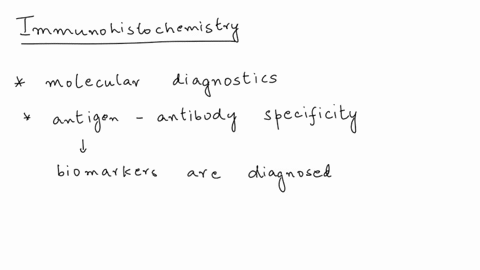 Immunohistochemistry
* molecular diagnostics
* antigen - antibody specificity
↓
biomarkers are diagnosed